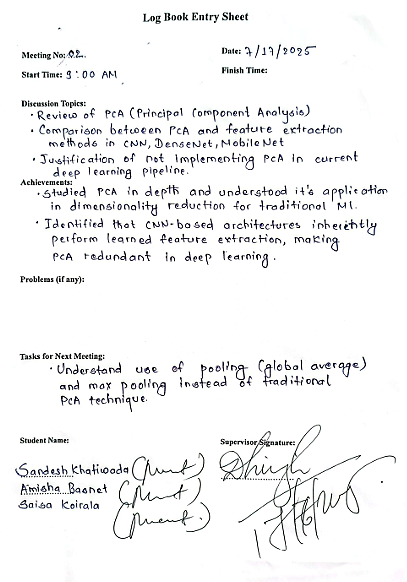 Log Book Entry Sheet
Meeting No: 02.
Date: 7/17/2025
Start Time: 9:00 AM
Finish Time:
Discussion Topics:
• Review of PCA (Principal Component Analysis)
• Comparison between PCA and feature extraction
methods in CNN, DenseNet, MobileNet
• Justification of not Implementing PCA in current
deep learning pipeline.
Achievements:
• Studied PCA in depth and understood it's application
in dimensionality reduction for traditional ML.
• Identified that CNN-based architectures inherently
perform learned feature extraction, making
PCA redundant in deep learning.
Problems (if any):
Tasks for Next Meeting:
• Understand use of pooling (global average)
and max pooling instead of traditional
PCA technique.
Student Name:
Supervisor Signature:
Sandesh Khatiwada
Amisha Basnet
Saisa Koirala